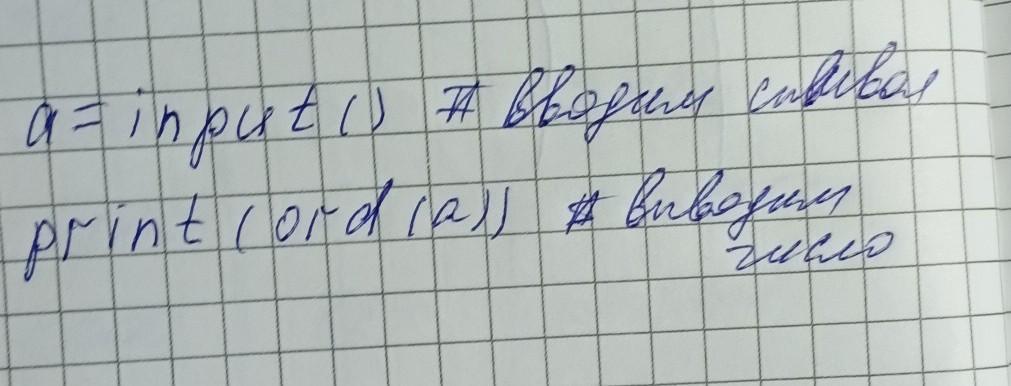 a = input() # вводим символ
print(ord(a)) # выводим
число